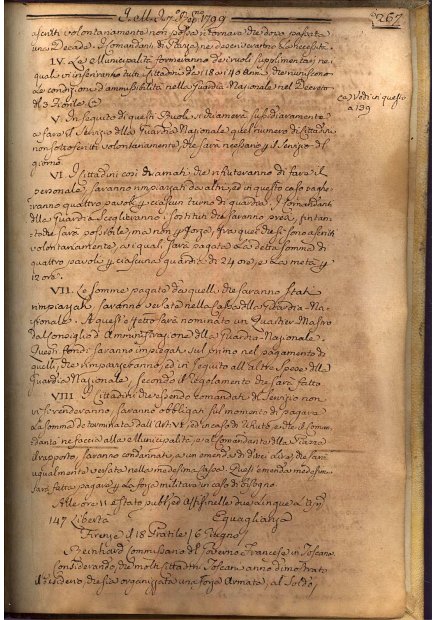 I. M. 1799
267
ascritti volontariamente non possa ritornare che dopo passata
una Decade. I Comandanti di Piazza ne decreteranno la necessità.
IV. Le Municipalità formeranno dei ruoli supplimentarj ne
quali v'inseriranno tutti i Cittadini dei 18 ai 40 Anni, che riuniscono
Le condizioni d'ammissibilità nella Guardia Nazionale nel Decreto
del 3 Aprile
Vedi in questo
a 139
V. In seguito di questi Ruoli si chiamerà sussidiariamente
a fare il Servizio della Guardia Nazionale quel numero di Cittadini
non sottoscritti volontariamente, che sarà necessario pel servizio del
giorno
VI. I Cittadini così chiamati che rifiuteranno di fare il
personale, saranno rimpiazzati da altri, ed in questo caso paghe-
ranno quattro pavoli per ciascun turno di guardia. I Comandanti
della Guardia sceglieranno i sostituti che saranno presi, fintan-
to che sarà possibile, ma non per forza, fra quei che si sono ascritti
volontariamente, ai quali sarà pagata la detta somma di
quattro pavoli per ciascuna guardia di 24 ore, e la metà per
12 ore.
VII. Le somme pagate da quelli che saranno stati
rimpiazzati saranno versate nella cassa della Guardia Na-
zionale. A quest'effetto sarà nominato un Quartier Mastro
dal Consiglio d'Amministrazione della Guardia Nazionale.
Questi fondi saranno impiegati sul primo nel pagamento di
quelli, che rimpiazzeranno, ed in seguito all'altre spese della
Guardia Nazionale, secondo il Regolamento che sarà fatto
VIII I Cittadini che essendo comandati di servizio non
vi si renderanno, saranno obbligati sul momento di pagare
La somma determinata dall'Art. VI, ed in caso di rifiuto, e che il Coman-
dante ne faccia alla Municipalità, o al Comandante della Piazza
il rapporto, saranno condannati a un emenda di dieci Lire, che sarà
ugualmente versata nella medesima cassa. Quest'emenda medesima
sarà fatta pagare per la forza militare in caso di bisogno.
Alle ore 11 è stato pubblicato ed affisso
147 Libertà Eguaglianza
Firenze il 18 Pratile / 6 Giugno /
Reinhard Commissario del Governo Francese in Toscana
Considerando, che molti Cittadini Toscani anno dimostrato
il desiderio, che sia organizzata una forza Armata, al soldo,